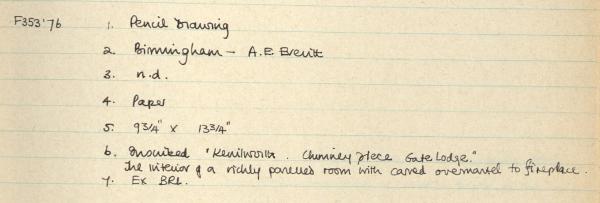 F353'76 1. Pencil Drawing
2. Birmingham - A.E. Everitt
3. n.d.
4. Paper
5. 9 3/4" x 13 3/4"
6. Inscribed "Kenilworth. Chimney piece Gate Lodge."
The interior of a richly panelled room with carved overmantel to fireplace.
7. Ex BRL.